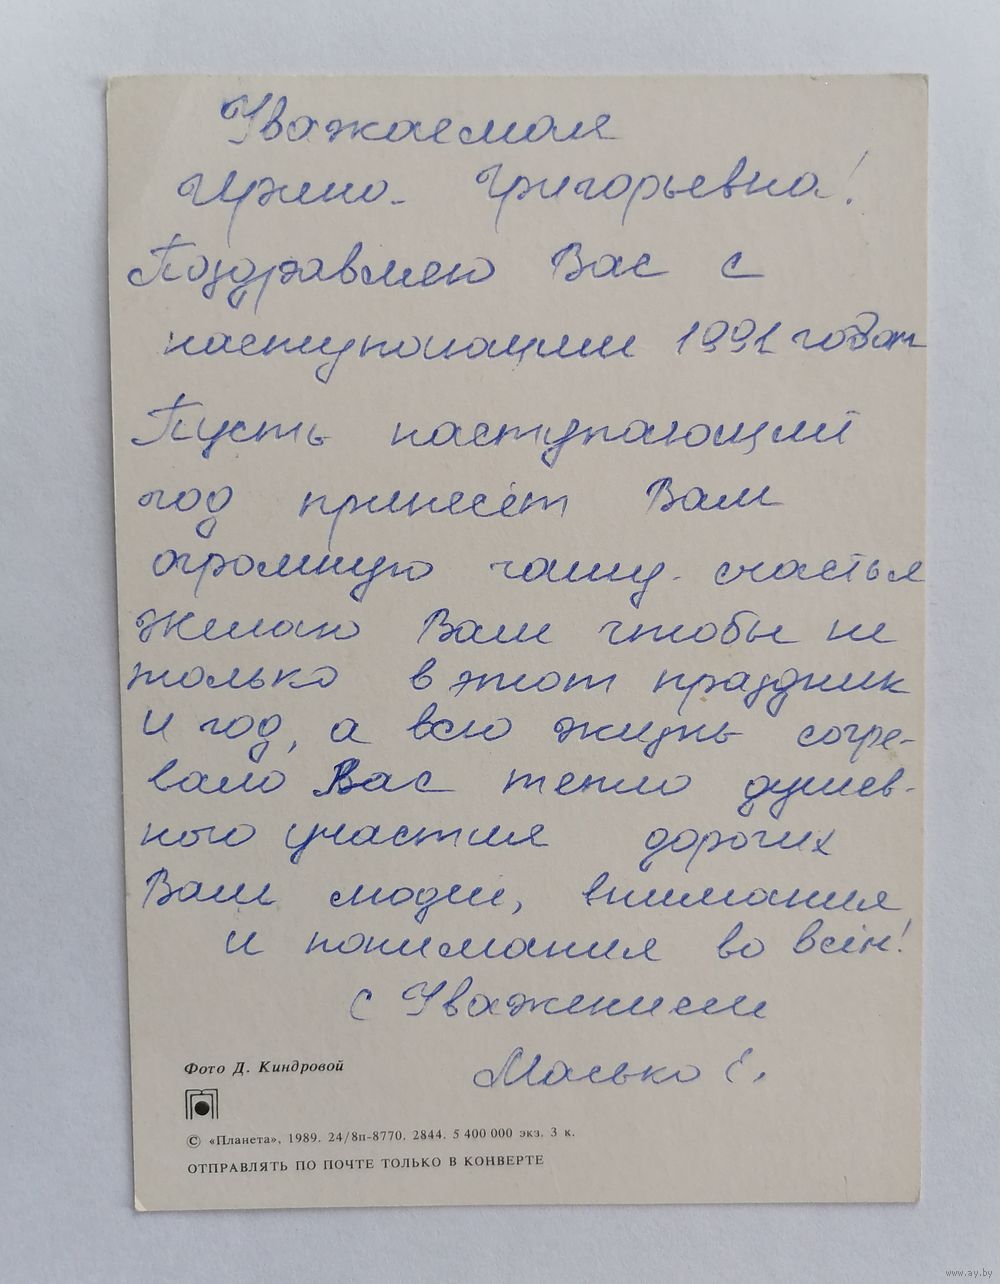 Уважаемая
Ирина Григорьевна!
Поздравляю Вас с
наступающим 1991 годом
Пусть наступающий
год принесёт Вам
огромную чашу счастья
Желаю Вам чтобы не
только в этот праздник
и год, а всю жизнь согре-
вало Вас тепло душев-
ного участия дорогих
Вам людей, внимания
и понимания во всём!
С Уважением
Масько Е.
Фото Д. Киндровой
© «Планета», 1989. 24/8п-8770. 2844. 5 400 000 экз. 3 к.
ОТПРАВЛЯТЬ ПО ПОЧТЕ ТОЛЬКО В КОНВЕРТЕ
www.ay.by